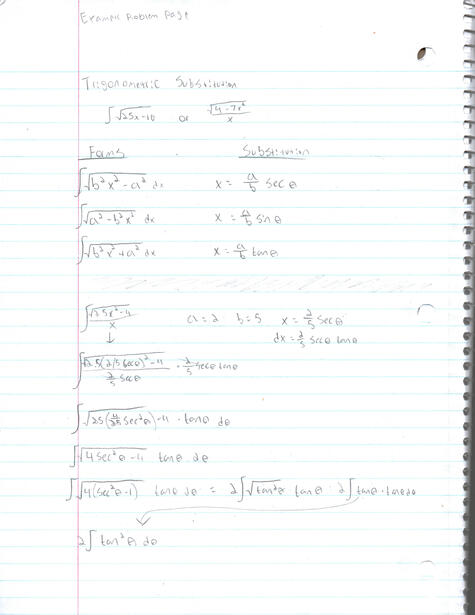 Example Problem Page
Trigonometric Substitution
∫√25x-10 or √4-7x² / x
Forms Substitution
∫√b²x² - a² dx x = a/b sec θ
∫√a² - b²x² dx x = a/b sin θ
∫√b²x² + a² dx x = a/b tan θ
∫√25x²-4 / x a=2 b=5 x = 2/5 sec θ
↓ dx = 2/5 sec θ tan θ
∫√25(2/5 sec θ)² - 4 / 2/5 sec θ · 2/5 sec θ tan θ
∫√25(4/25 sec² θ) - 4 · tan θ dθ
∫√4 sec² θ - 4 tan θ dθ
∫√4(sec² θ - 1) tan θ dθ = 2∫√tan² θ tan θ 2∫tan θ · tan θ dθ
2∫tan² θ dθ